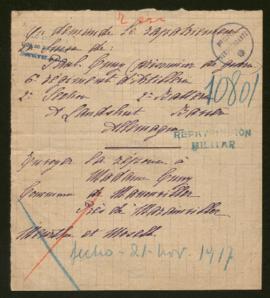 Je demande le rapatriement
en Suisse de:
Paul Cuny prisonnier de guerre
6e régiment d'artillerie
2e Section 2e Batt
A Landshut Bavière
Allemagne
10801
REPATRIACIÓN
MILITAR
Envoyer la réponse à
Madame Cuny
Commune de Manonviller
Près de Marainviller
Meurthe et Moselle
fecho - 21 - nov. 1917